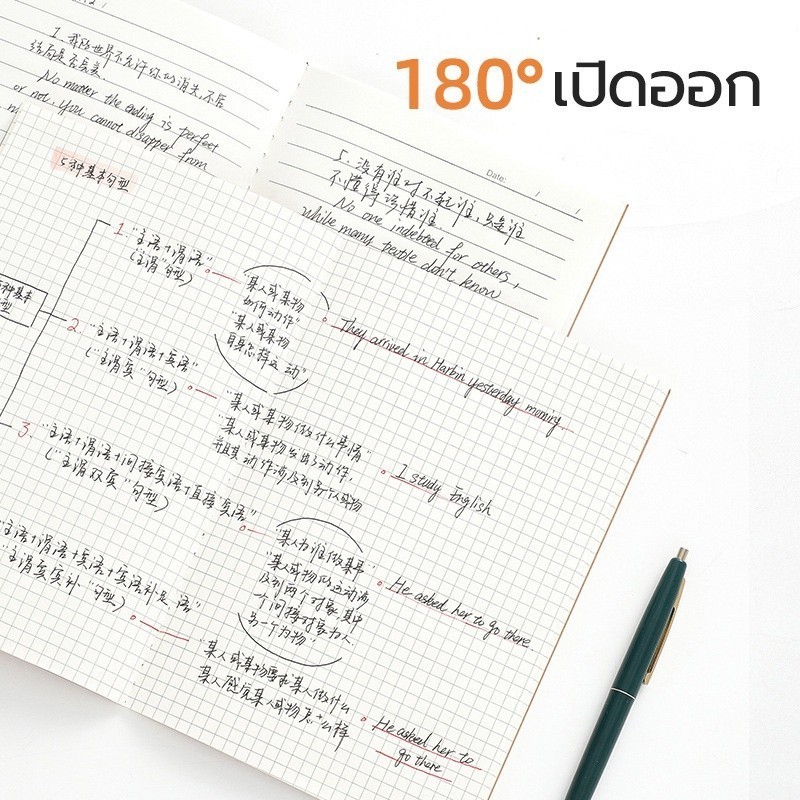 180° เปิดออก
1. 我的世界不允许你的消失,不管
结局是否完美.
No matter the ending is perfect
or not, you cannot disapper from
m
Date: / /
5. 没有谁对不起谁,只是谁
不懂得珍惜谁.
No one indebted for others,
while many people don't know
5种基本句型
1. "主语+谓语"
("主谓"句型)
"某人或某物
如何动作"
"某人或某物
自身怎样运动"
They arrived in Harbin yesterday morning.
2. "主语+谓语+宾语"
("主谓宾"句型)
"某人或某物做什么事情"
"某人或某物发出了动作,
并且其动作涉及到另个人或物
I study English
3. "主语+谓语+间接宾语+直接宾语"
("主谓双宾"句型)
"某人为谁做某事"
"某人或某物的运动涉
及到两个对象,其中
一个间接对象为人,
另一个为物"
He asked her to go there.
主语+谓语+宾语+宾语补足语"
"主谓宾宾补"句型)
"某人或某物要求某人做什么
某人感觉某人或物怎么样
He asked her to
go there